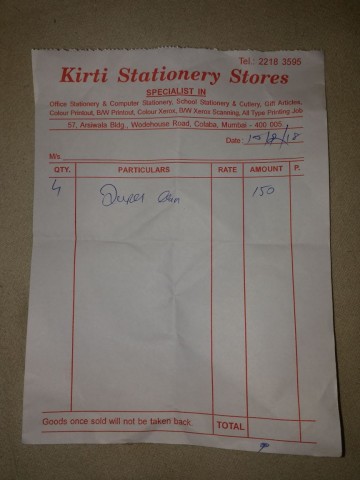 Tel.: 2218 3595
Kirti Stationery Stores
SPECIALIST IN
Office Stationery & Computer Stationery, School Stationery & Cutlery, Gift Articles,
Colour Printout, B/W Printout, Colour Xerox, B/W Xerox Scanning, All Type Printing Job
57, Arsiwala Bldg., Wodehouse Road, Colaba, Mumbai - 400 005.
Date:
M/s
QTY. PARTICULARS RATE AMOUNT P.
4 150
Goods once sold will not be taken back. TOTAL